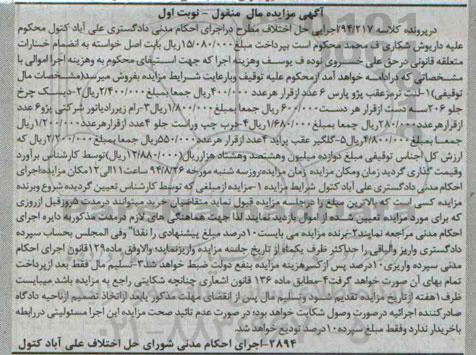 آگهی مزایده مال منقول - نوبت اول
درپرونده کلاسه ۹۴/۲۱۷اجرایی حل اختلاف مطرح دراجرای احکام مدنی دادگستری علی آباد کتول محکوم
علیه داریوش شکاری ف محمد محکوم است بپرداخت مبلغ۱۵/۰۸۰/۰۰۰ریال بابت اصل خواسته به انضمام خسارات
متعلقه قانونی درحق علی خسروی نوده ف یوسف وهزینه اجرا که جهت استیفای محکوم به وهزینه اجرا اموالی با
مشخصاتی که درادامه خواهد آمد ازمحکوم علیه توقیف وبارعایت شرایط مزایده بفروش میرسد(مشخصات مال
توقیفی)۱-لنت ترمزعقب پژو پارس ۶ عدد ازقرار هرعدد ۴۰۰/۰۰۰ ریال جمعا بمبلغ۲/۴۰۰/۰۰۰ریال۲-دیسک چرخ
جلو ۲۰۶ ازقرار هر دست۶۰۰/۰۰۰ ریال جمعا بمبلغ۱/۸۰۰/۰۰۰ریال۳-رام زیررادیاتور شرکتی پژو۶ عدد
ازقرارهرعدد۲۸۰/۰۰۰ ریال جمعا بمبلغ۱/۶۸۰/۰۰۰ریال۴-قرب جپ وراست جلو ۴عدد ازقرارهرعدد۱/۲۰۰/۰۰۰ریال
جمعا بمبلغ۴/۸۰۰/۰۰۰ریال۵-گلگیر عقب پراید ۴عدد ازقرار هرعدد۵۵۰/۰۰۰ریال جمعا بمبلغ۲/۲۰۰/۰۰۰ریال که
ارزش کل اجناس توقیفی مبلغ دوازده میلیون وهشتصد وهشتاد هزارریال(۱۲/۸۸۰/۰۰۰ریال)توسط کارشناس برآورد
وقیمت گذاری گردید زمان ومکان مزایده زمان مزایده:روزسه شنبه مورخه ۹۴/۸/۲۶ ساعت۱۱الی۱۲مکان مزایده:اجرای
احکام مدنی دادگستری علی آباد کتول شرایط مزایده ۱-مزایده ازمبلغی که توسط کارشناس تعیین گردیده شروع وبرنده
مزایده کسی است که بالاترین مبلغ را درجلسه مزایده قبول نماید متقاضیان خرید میتوانند درمدت ۵روزقبل ازروزی
که برای مورد مزایده تعیین شده از اموال بازدید نمایند لذا جهت هماهنگی های لازم درمدت مذکوربه دایره اجرای
احکام مدنی مراجعه نمایند۲-برنده مزایده می بایست۱۰درصد مبلغ پیشنهادی را نقدا" وفی المجلس بحساب سپرده
دادگستری واریز والباقی را حداکثر ظرف یکماه از تاریخ جلسه مزایده واریزنماید؛ والاوفق ماده۱۲۹قانون اجرای احکام
مدنی سپرده واریزی۱۰درصد پس ازکسرهزینه مزایده بنفع دولت ضبط خواهد شد۳-تسلیم مال فقط بعد ازپرداخت
تمام بهای آن صورت خواهد گرفت۴-مطابق ماده ۱۳۶ قانون اشعاری چنانچه شکایتی راجع به مزایده باشد میبایست
ظرف۱هفته ازتاریخ مزایده تقدیم شود وتسلیم مال پس از انقضای مهلت مذکور یابعد ازاتخاذ تصمیم ازناحیه دادگاه
صادرکننده اجرائیه درصورت وصول شکایت خواهد بود؛ در صورت عدم تائید صحت مزایده این اجرا مسئولیتی دررابطه
باخریدار ندارد وفقط مبلغ سپرده۱۰درصد تودیع خواهد شد.
۲۸۹۴-اجرای احکام مدنی شورای حل اختلاف علی آباد کتول